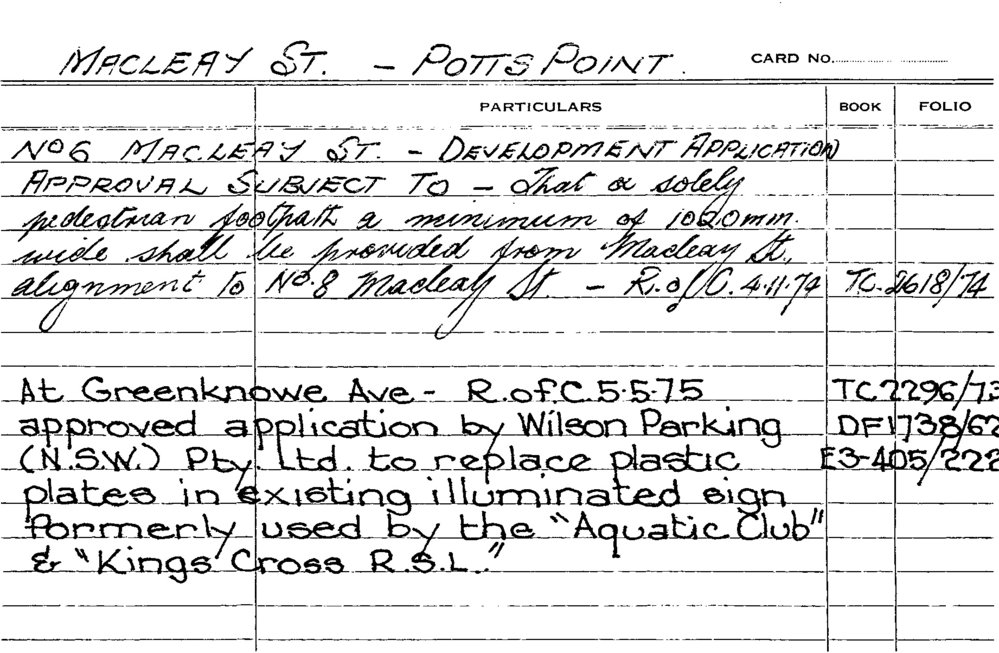 MACLEAY ST. - POTTS POINT. CARD No.
PARTICULARS BOOK FOLIO
No 6 MACLEAY ST. - DEVELOPMENT APPLICATION
APPROVAL SUBJECT TO - That a solely
pedestrian footpath a minimum of 1020mm.
wide shall be provided from Macleay St.,
alignment to No. 8 Macleay St. - R.of C. 4.11.74 TC.2618/74
At Greenknowe Ave - R.of C. 5.5.75 TC2296/73
approved application by Wilson Parking DF1738/62
(N.S.W.) Pty. Ltd. to replace plastic E3-405/222
plates in existing illuminated sign
formerly used by the "Aquatic Club"
& "Kings Cross R.S.L."